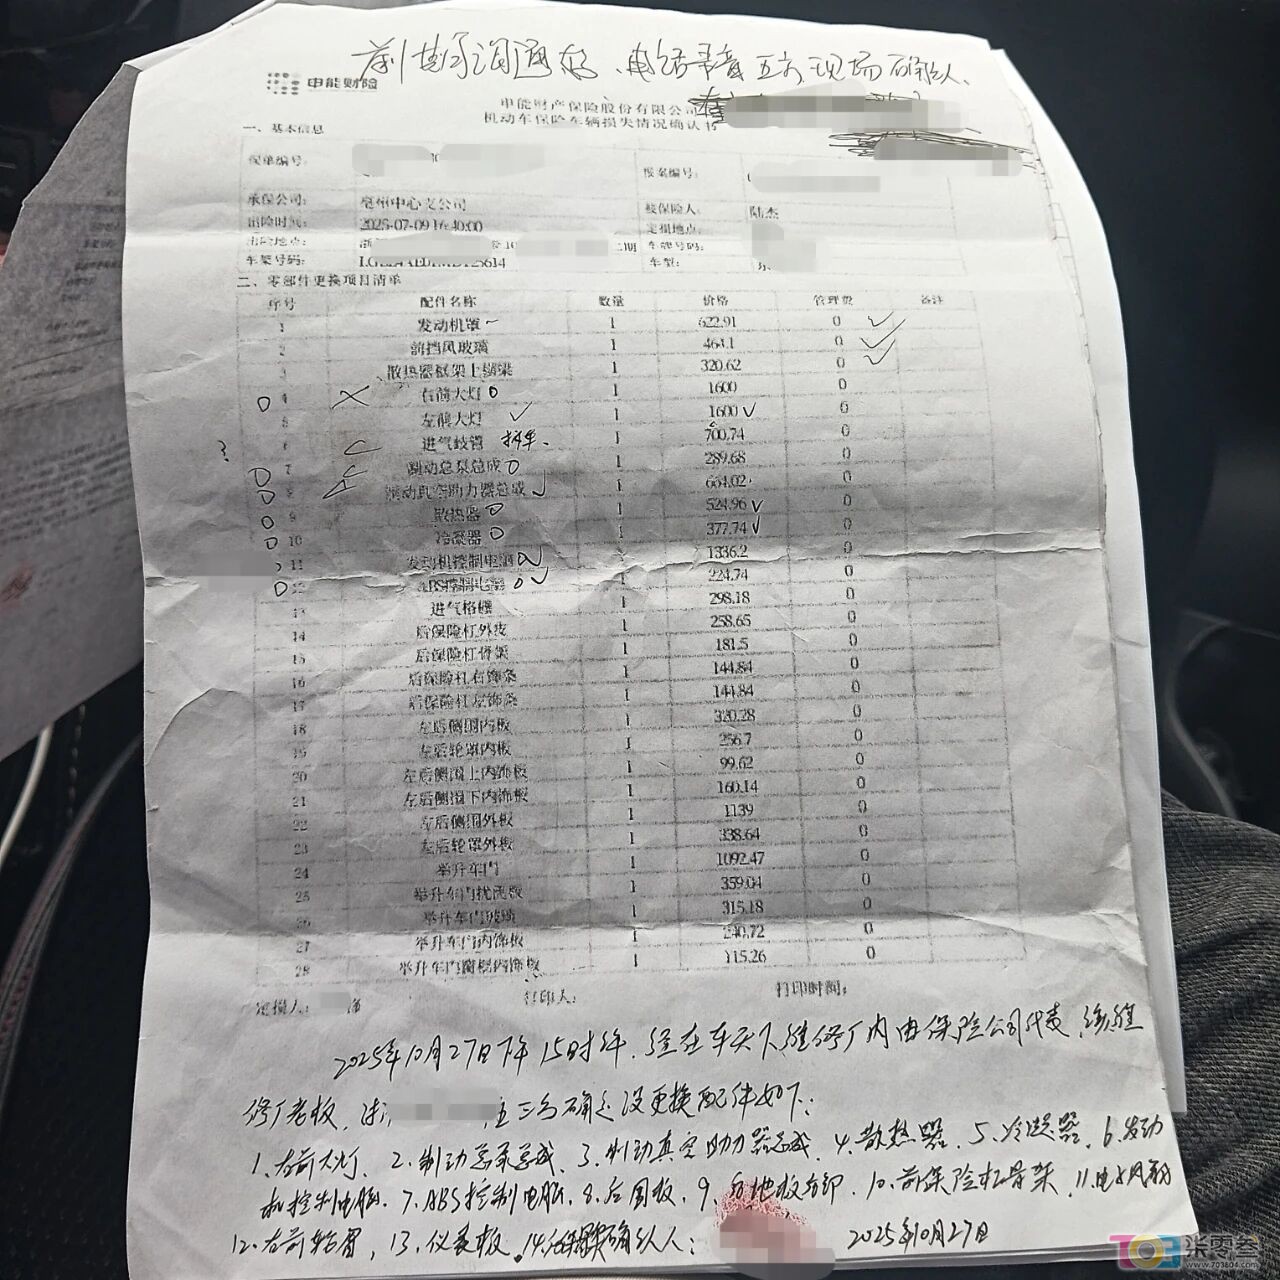 申能财险
申能财产保险股份有限公司
机动车保险车辆损失情况确认书
一、基本信息
保单编号:
报案编号:
承保公司: 亳州中心支公司 被保险人: 陆杰
出险时间: 2025-07-09 16:40:00 定损地点:
出险地点: 车牌号码:
车架号码: 车型:
二、零部件更换项目清单
序号 配件名称 数量 价格 管理费 备注
1 发动机罩 1 622.91 0
2 前挡风玻璃 1 464.1 0
3 散热器框架上横梁 1 320.62 0
4 右前大灯 1 1600 0
5 左前大灯 1 1600 0
6 进气歧管 1 700.74 0
7 制动总泵总成 1 289.68 0
8 制动真空助力器总成 1 664.02 0
9 散热器 1 524.96 0
10 冷凝器 1 377.74 0
11 发动机控制电脑 1 1336.2 0
12 ABS控制电脑 1 224.74 0
13 进气格栅 1 298.18 0
14 后保险杠外皮 1 258.65 0
15 后保险杠骨架 1 181.5 0
16 后保险杠右饰条 1 144.84 0
17 后保险杠左饰条 1 144.84 0
18 左后侧围内板 1 320.28 0
19 左后轮罩内板 1 256.7 0
20 左后侧围上内饰板 1 99.62 0
21 左后侧围下内饰板 1 160.14 0
22 左后侧围外板 1 1139 0
23 左后轮罩外板 1 338.64 0
24 举升车门 1 1092.47 0
25 举升车门扰流板 1 359.04 0
26 举升车门玻璃 1 315.18 0
27 举升车门内饰板 1 240.72 0
28 举升车门窗框内饰板 1 115.26 0
定损人: 打印人: 打印时间:
2025年10月27日下午15时许,经在车天下维修厂内由保险公司代表,
修厂老板, 三方确定没更换配件如下:
1、右前大灯、2、制动总泵总成、3、制动真空助力器总成、4、散热器、5、冷凝器、6、发动
机控制电脑、7、ABS控制电脑、8、后围板、9、后地板 10、前保险杠骨架、11、
12、右前 13、仪表板、14、 确认人:
2025年10月27日
703 柒零叁
www.703804.com